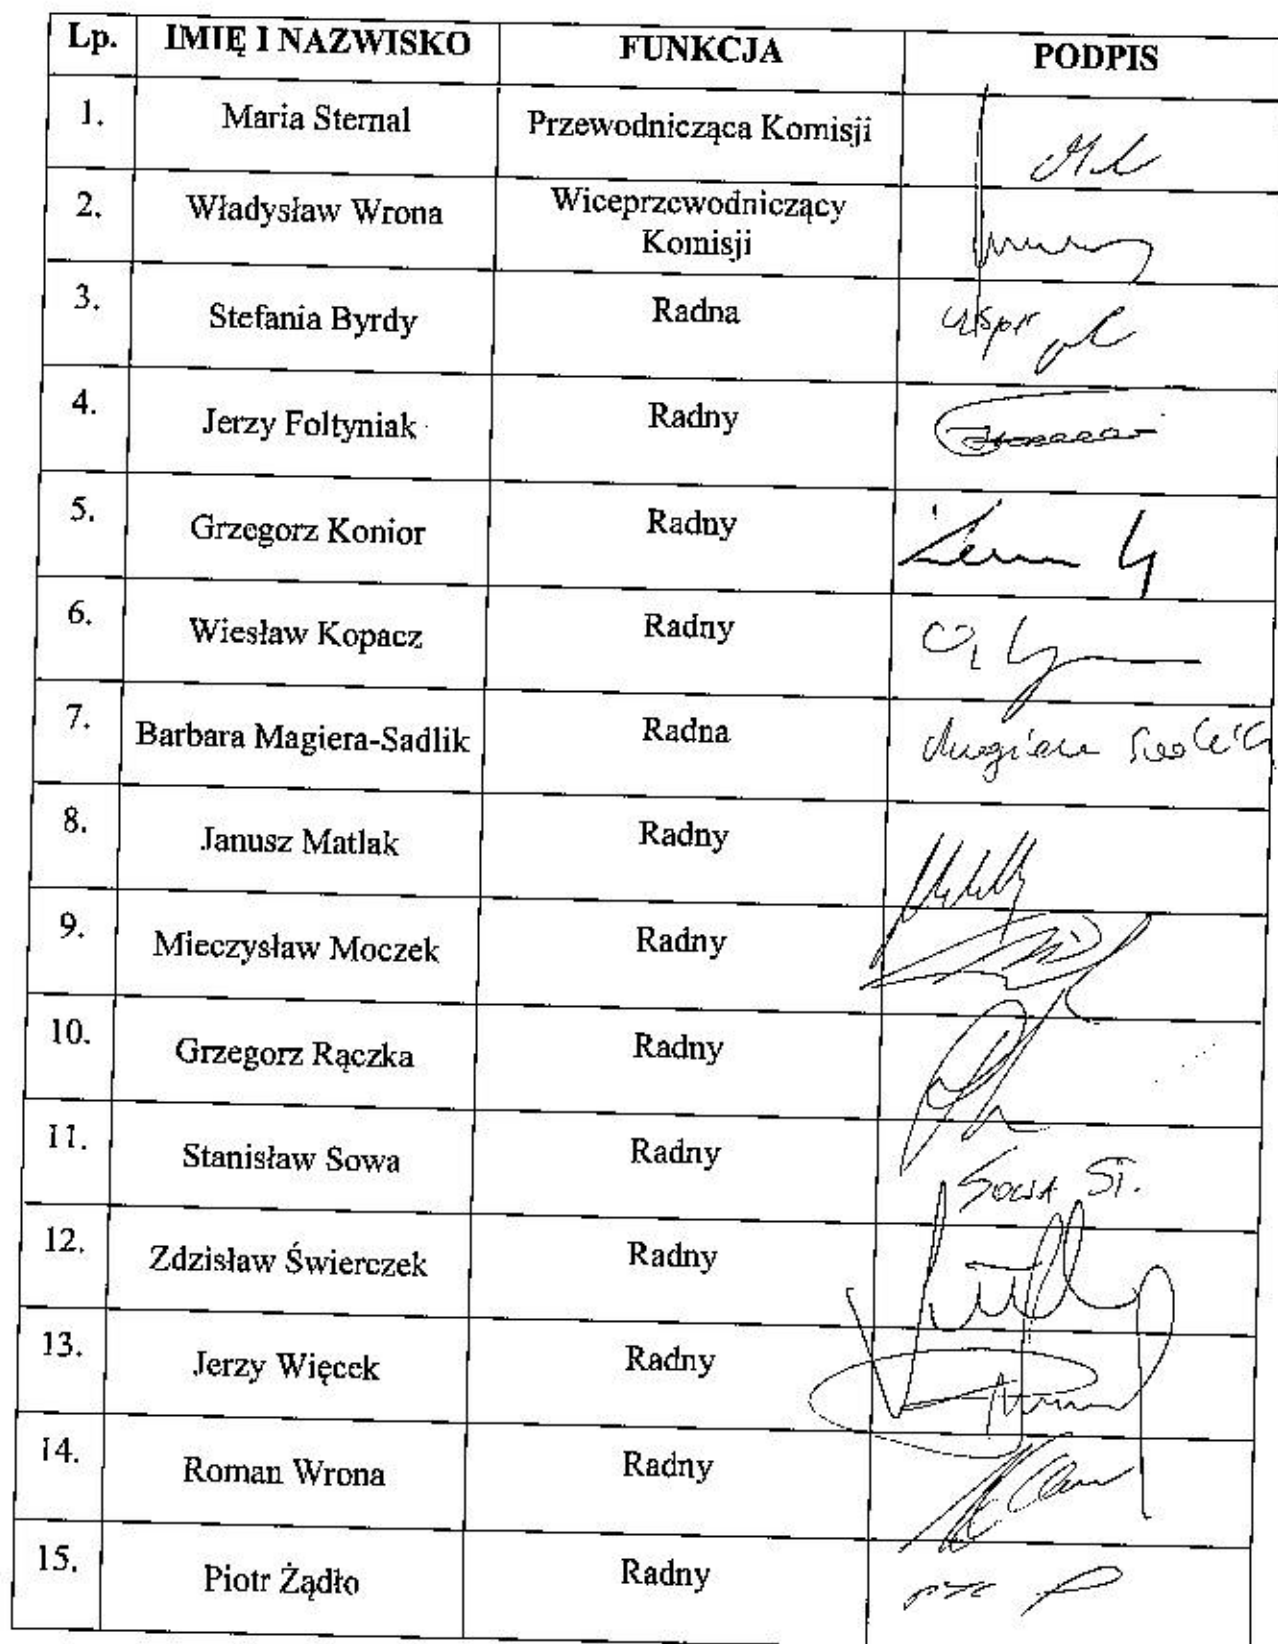 Lp. IMIĘ I NAZWISKO FUNKCJA PODPIS
1. Maria Sternal Przewodnicząca Komisji
2. Władysław Wrona Wiceprzewodniczący
Komisji
3. Stefania Byrdy Radna uspr
4. Jerzy Foltyniak Radny
5. Grzegorz Konior Radny
6. Wiesław Kopacz Radny
7. Barbara Magiera-Sadlik Radna Magiera Sadlik
8. Janusz Matlak Radny
9. Mieczysław Moczek Radny
10. Grzegorz Rączka Radny
11. Stanisław Sowa Radny Sowa St.
12. Zdzisław Świerczek Radny
13. Jerzy Więcek Radny
14. Roman Wrona Radny
15. Piotr Żądło Radny